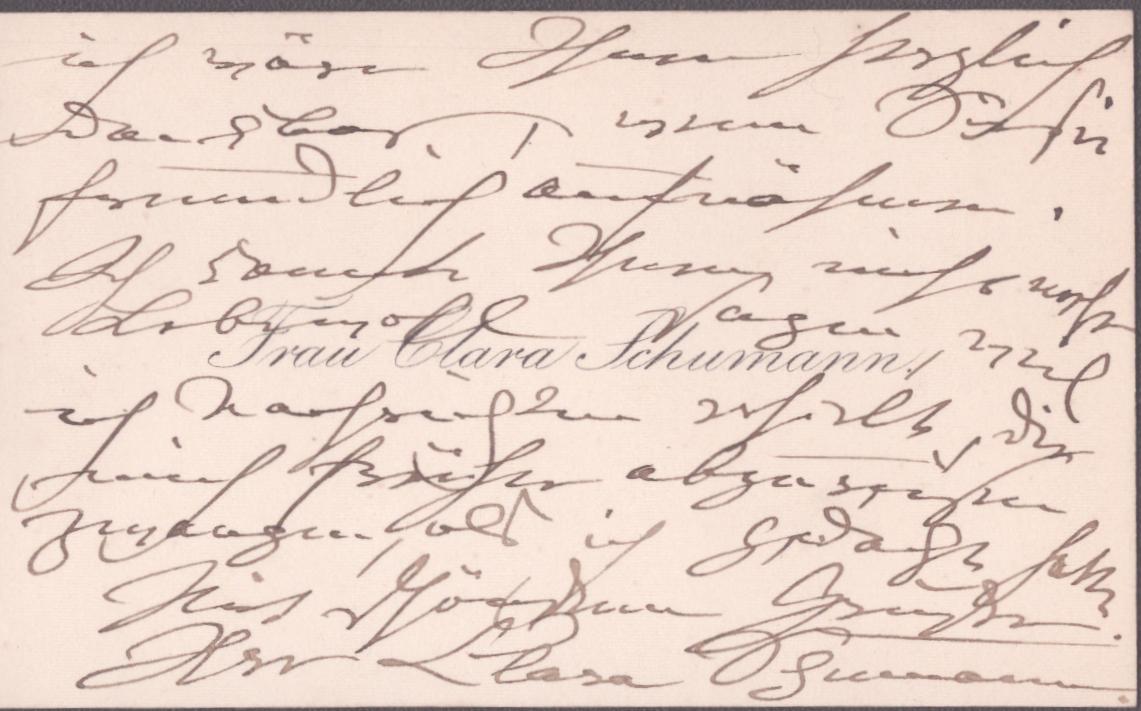 ich wäre Ihnen herzlich
dankbar, wenn Sie sie
freundlich aufnähmen.
Ich konnte Ihnen nicht noch
Lebewohl sagen, weil
Frau Clara Schumann.
ich Nachrichten erhielt, die
mich früher abzureisen
zwangen, als ich gedacht hatte.
Mit schönsten Grüßen
Ihre Clara Schumann